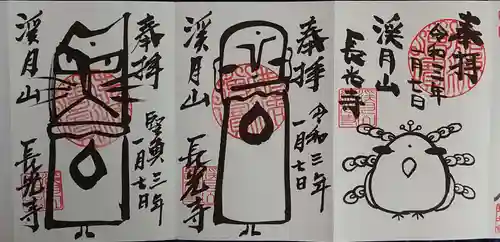 奉拝
令和三年
一月七日
渓月山
長光寺
奉拝
令和三年
一月七日
渓月山
長光寺
奉拝
一月七日
渓月山
長光寺